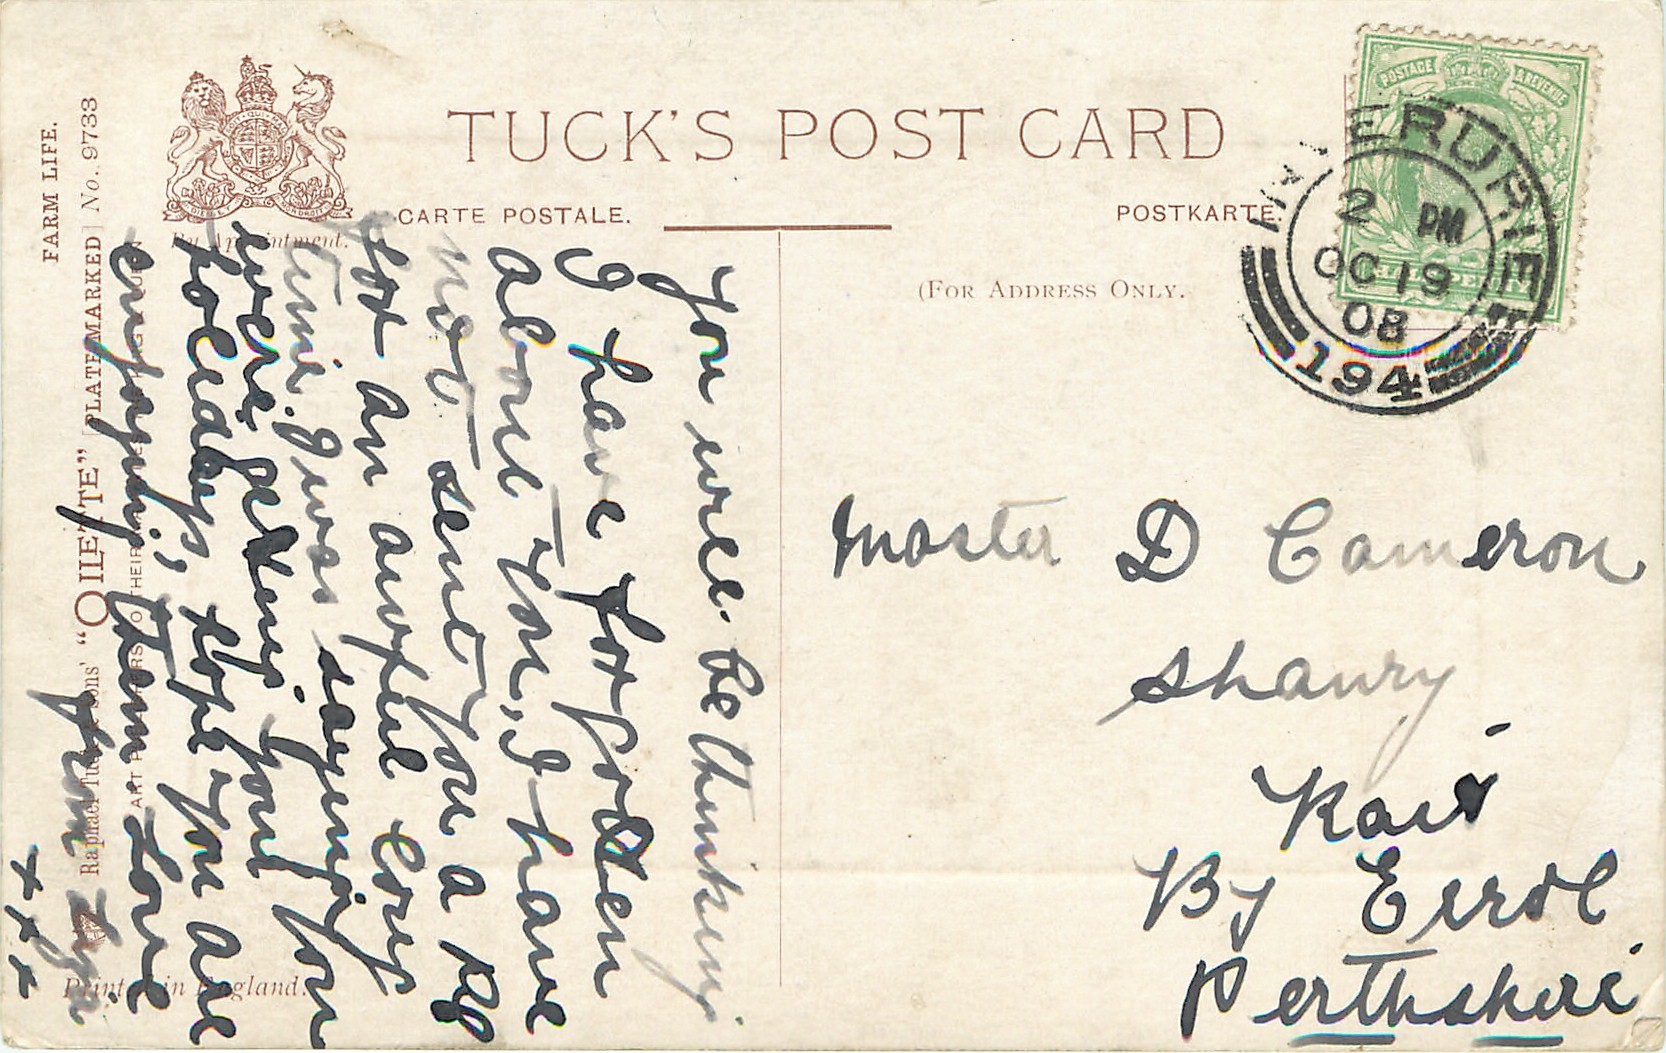 TUCK'S POST CARD
CARTE POSTALE.
POSTKARTE.
(FOR ADDRESS ONLY.
By Appointment.
FARM LIFE.
Raphael Tuck & Sons' “OILETTE” [PLATE-MARKED] No. 9733
ART PUBLISHERS TO THEIR
Printed in England.
POSTAGE & REVENUE
INVERURIE
2 PM
OC 19
08
194
You will be thinking
I have forgotten
about you, I have
not sent you a PC
for an awful long
time. I was saying you
were getting your
holidays, hope you are
enjoying them. Love
from
x x x
Master D Cameron
Shanry
Rait
By Errol
Perthshire